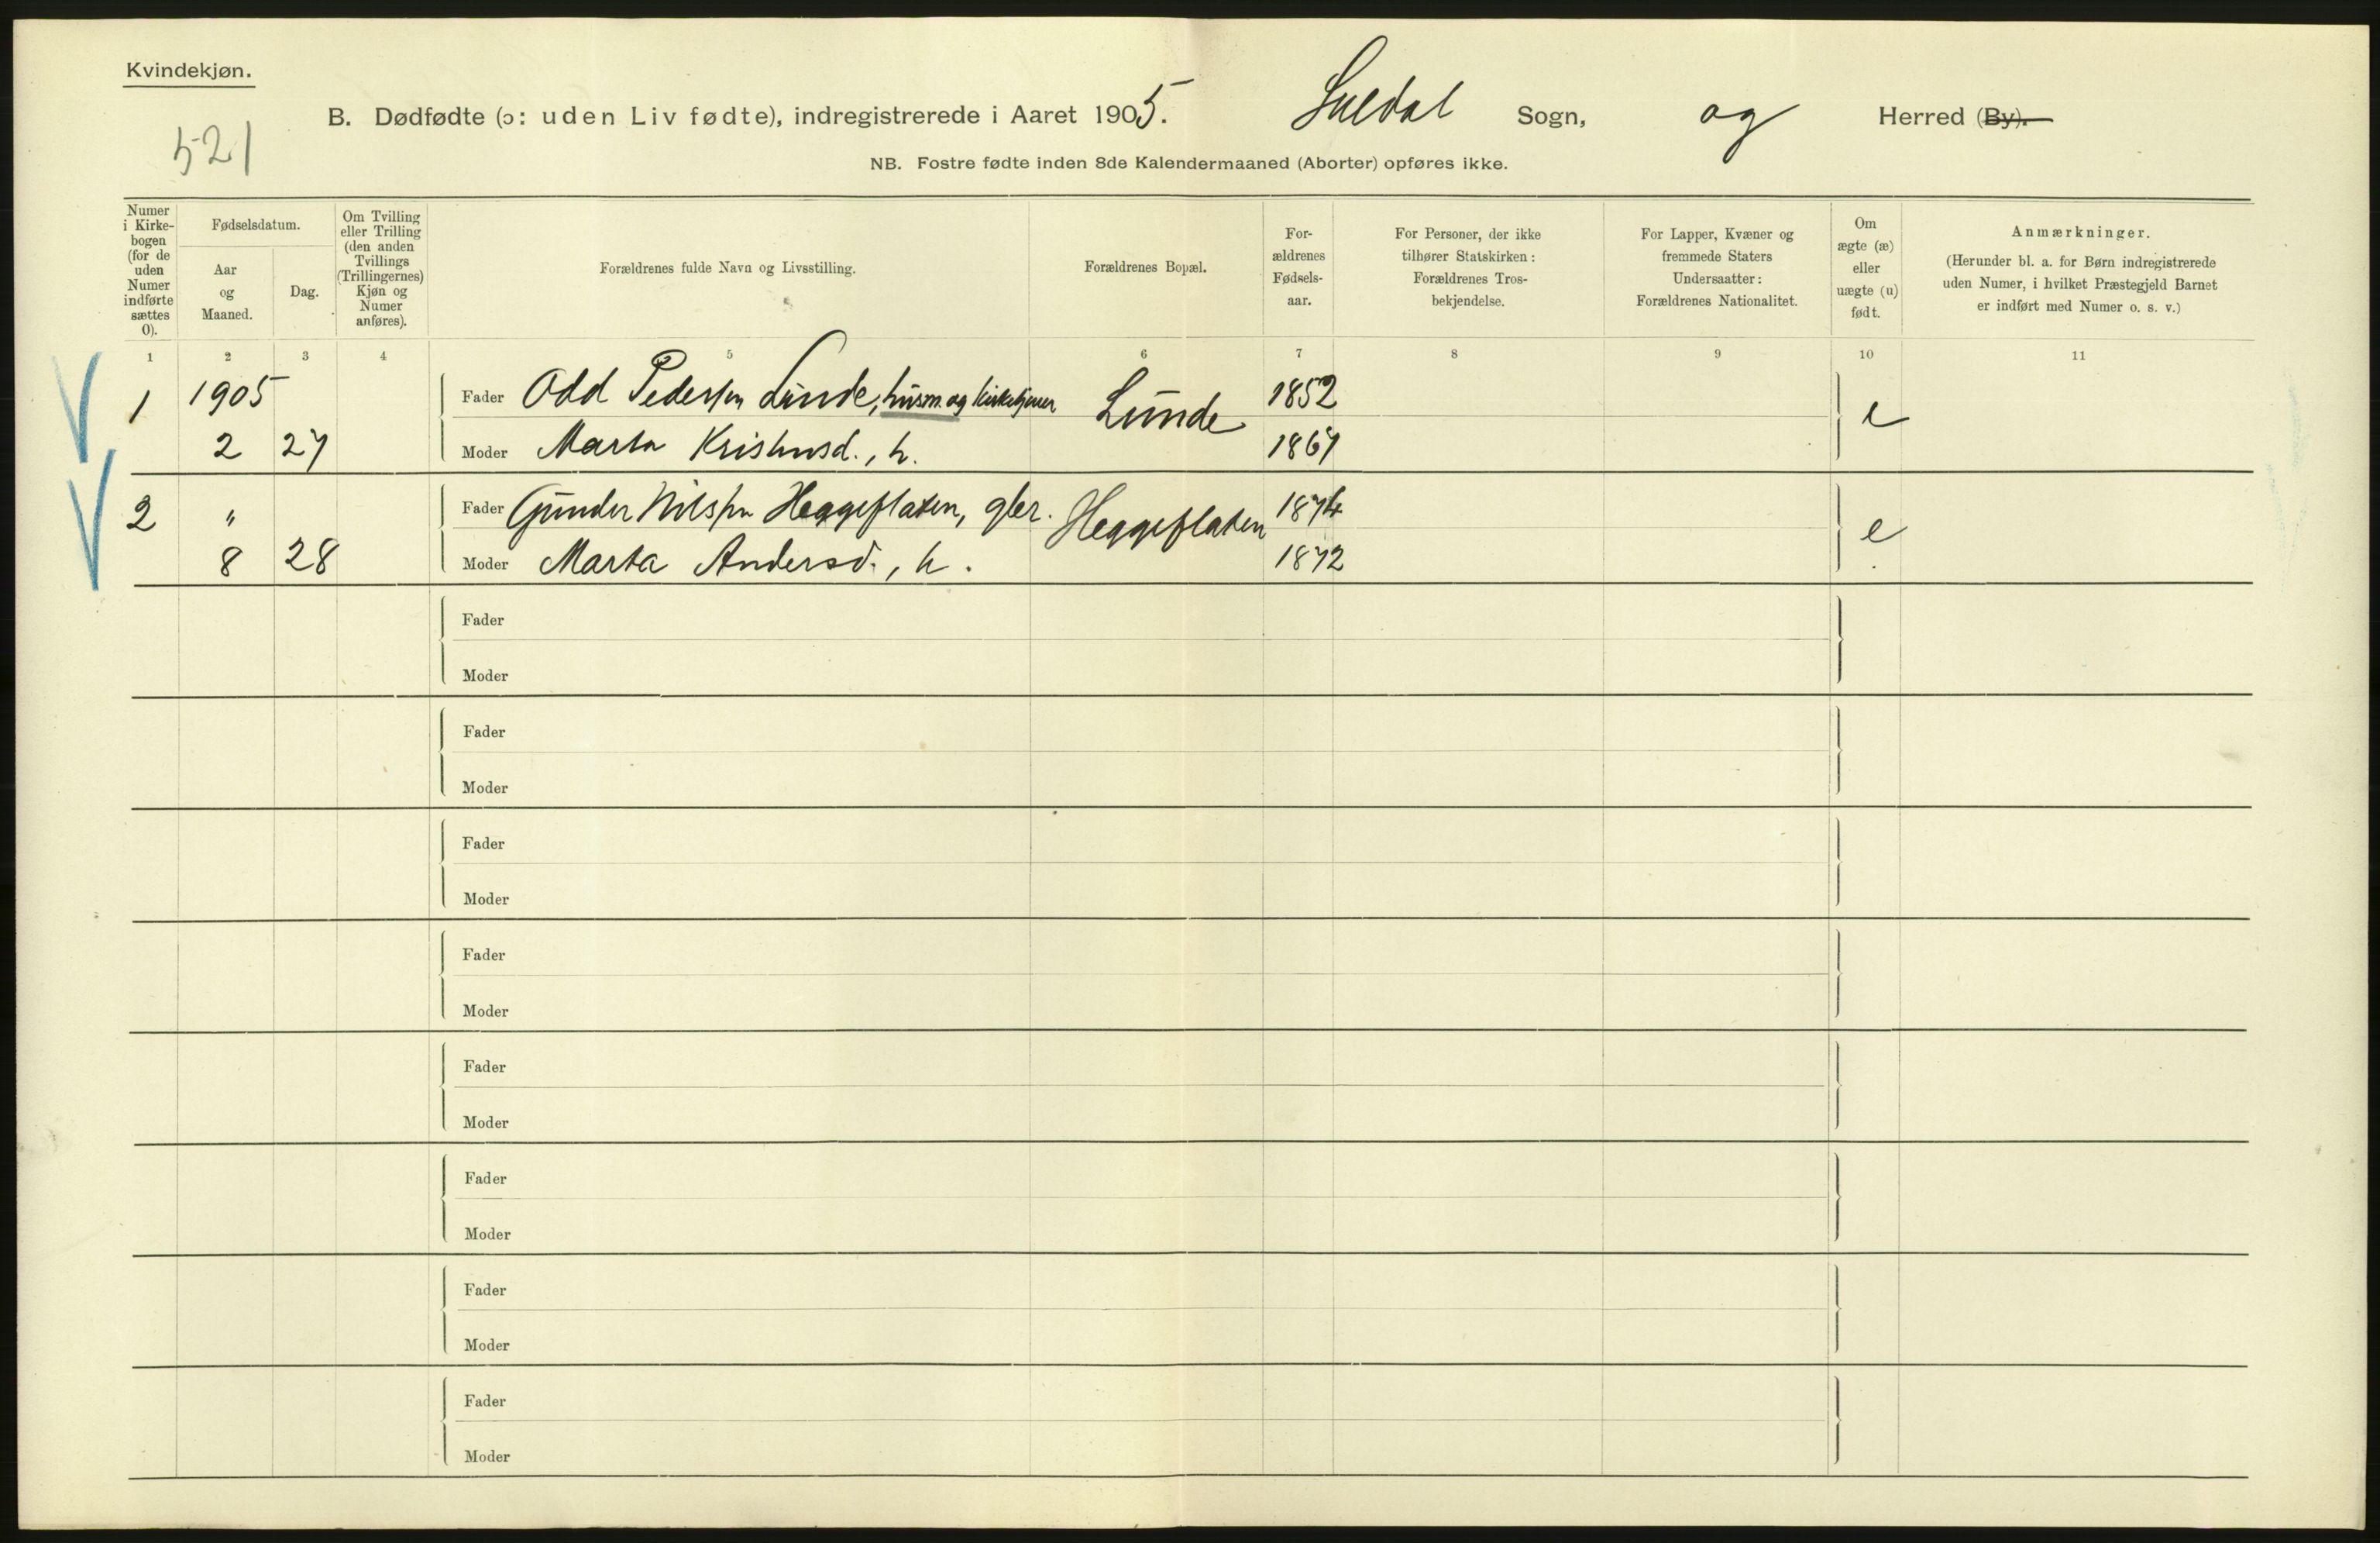 Kvindekjøn.
521
B. Dødfødte (ɔ: uden Liv fødte), indregistrerede i Aaret 1905. Suldal Sogn, og Herred (By).
NB. Fostre fødte inden 8de Kalendermaaned (Aborter) opføres ikke.
Numer i Kirke-bogen (for de uden Numer indførte sættes 0).
Fødselsdatum.
Aar og Maaned.
Dag.
Om Tvilling eller Trilling (den anden Tvillings (Trillingernes) Kjøn og Numer anføres).
Forældrenes fulde Navn og Livsstilling.
Forældrenes Bopæl.
For-ældrenes Fødsels-aar.
For Personer, der ikke tilhører Statskirken: Forældrenes Tros-bekjendelse.
For Lapper, Kvæner og fremmede Staters Undersaatter: Forældrenes Nationalitet.
Om ægte (æ) eller uægte (u) født.
Anmærkninger.
(Herunder bl. a. for Børn indregistrerede uden Numer, i hvilket Præstegjeld Barnet er indført med Numer o. s. v.)
1 2 3 4 5 6 7 8 9 10 11
1 1905 Fader Odd Pedersen Lunde, husm. og kirketjener Lunde 1852 e
2 27 Moder Marta Kristensd., h. 1867
2 " Fader Gunder Nilsen Heggeflaten, gbr. Heggeflaten 1874 e
8 28 Moder Marta Andersd., h. 1872
Fader
Moder
Fader
Moder
Fader
Moder
Fader
Moder
Fader
Moder
Fader
Moder
Fader
Moder
Fader
Moder